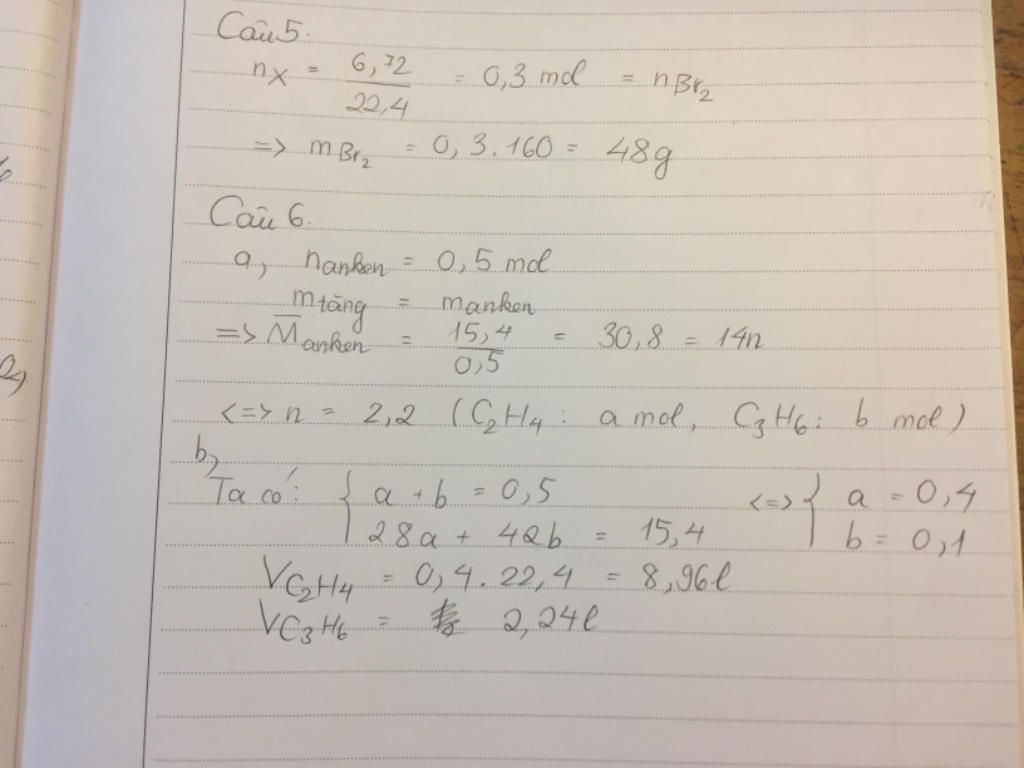 Câu 5.
nX = 6,72 / 22,4 = 0,3 mol = nBr₂
=> mBr₂ = 0,3.160 = 48g
Câu 6.
a, nanken = 0,5 mol
mtăng = manken
=> M̅anken = 15,4 / 0,5 = 30,8 = 14n
<=> n = 2,2 (C₂H₄: a mol, C₃H₆: b mol)
b,
Ta có: { a + b = 0,5 <=> { a = 0,4
28a + 42b = 15,4 b = 0,1
VC₂H₄ = 0,4.22,4 = 8,96l
VC₃H₆ = 2,24l